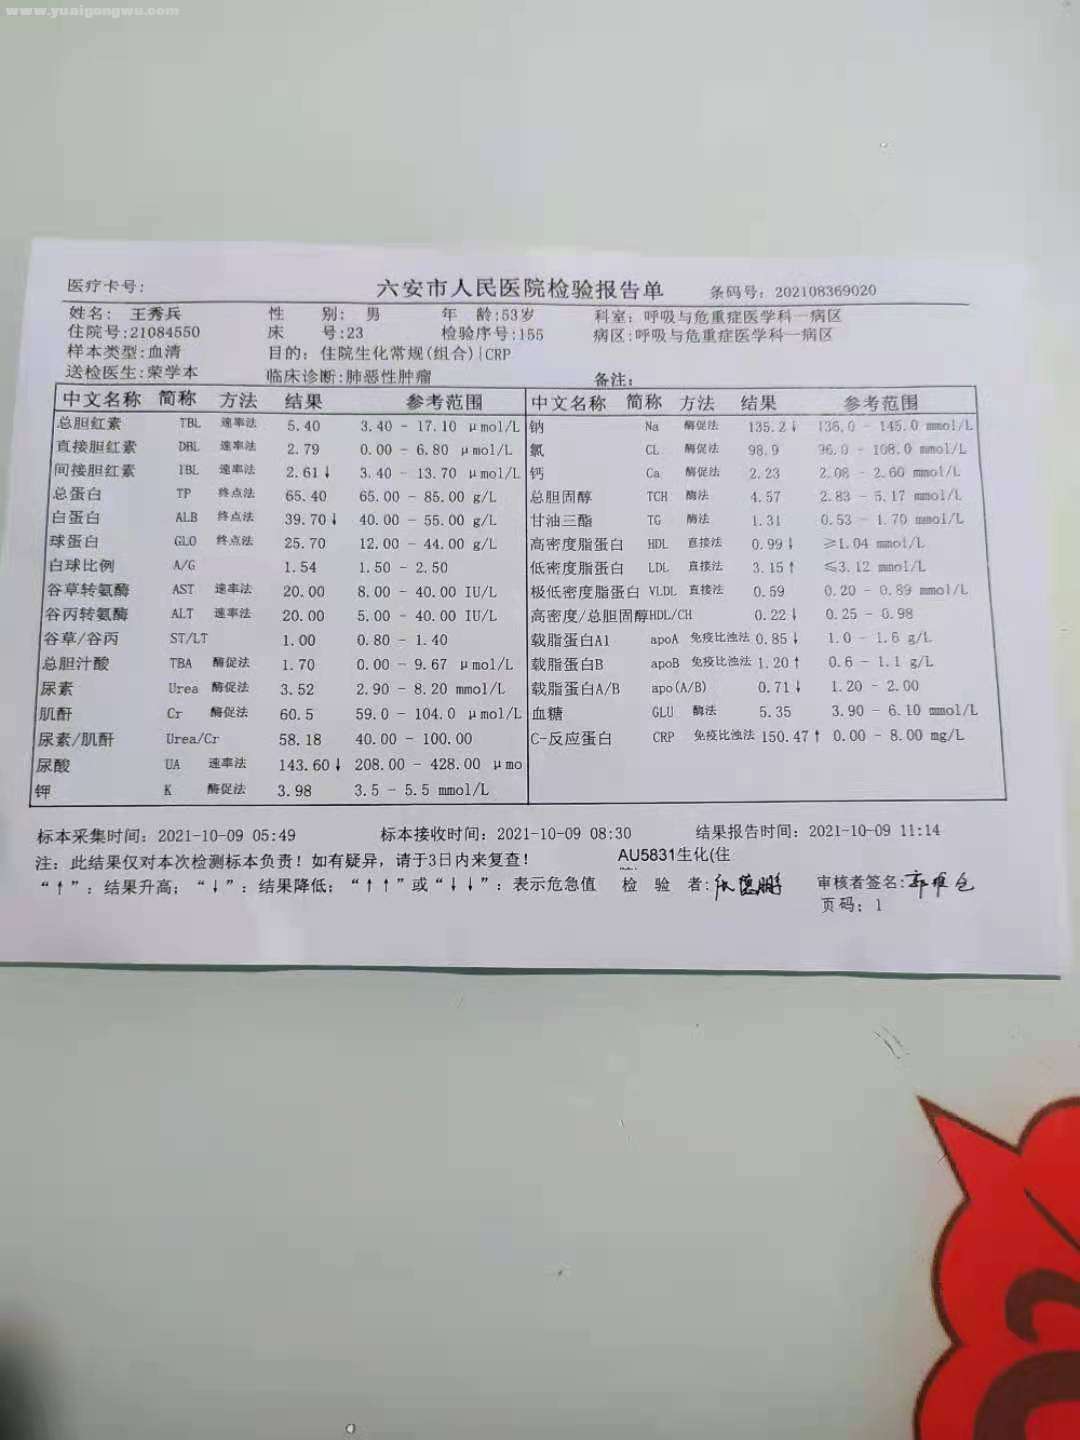 www.yuaigongwu.com
医疗卡号:
六安市人民医院检验报告单
条码号: 202108369020
姓名: 王秀兵 性 别: 男 年 龄:53岁 科室: 呼吸与危重症医学科一病区
住院号:21084550 床 号:23 检验序号:155 病区:呼吸与危重症医学科一病区
样本类型:血清 目的: 住院生化常规(组合)|CRP
送检医生:荣学本 临床诊断:肺恶性肿瘤 备注:
中文名称 简称 方法 结果 参考范围 中文名称 简称 方法 结果 参考范围
总胆红素 TBL 速率法 5.40 3.40 - 17.10 μmol/L 钠 Na 酶促法 135.2↓ 136.0 - 145.0 mmol/L
直接胆红素 DBL 速率法 2.79 0.00 - 6.80 μmol/L 氯 CL 酶促法 98.9 96.0 - 108.0 mmol/L
间接胆红素 IBL 速率法 2.61↓ 3.40 - 13.70 μmol/L 钙 Ca 酶促法 2.23 2.08 - 2.60 mmol/L
总蛋白 TP 终点法 65.40 65.00 - 85.00 g/L 总胆固醇 TCH 酶法 4.57 2.83 - 5.17 mmol/L
白蛋白 ALB 终点法 39.70↓ 40.00 - 55.00 g/L 甘油三酯 TG 酶法 1.31 0.53 - 1.70 mmol/L
球蛋白 GLO 终点法 25.70 12.00 - 44.00 g/L 高密度脂蛋白 HDL 直接法 0.99↓ ≥1.04 mmol/L
白球比例 A/G 1.54 1.50 - 2.50 低密度脂蛋白 LDL 直接法 3.15↑ ≤3.12 mmol/L
谷草转氨酶 AST 速率法 20.00 8.00 - 40.00 IU/L 极低密度脂蛋白 VLDL 直接法 0.59 0.20 - 0.89 mmol/L
谷丙转氨酶 ALT 速率法 20.00 5.00 - 40.00 IU/L 高密度/总胆固醇 HDL/CH 0.22↓ 0.25 - 0.98
谷草/谷丙 ST/LT 1.00 0.80 - 1.40 载脂蛋白A1 apoA 免疫比浊法 0.85↓ 1.0 - 1.6 g/L
总胆汁酸 TBA 酶促法 1.70 0.00 - 9.67 μmol/L 载脂蛋白B apoB 免疫比浊法 1.20↑ 0.6 - 1.1 g/L
尿素 Urea 酶促法 3.52 2.90 - 8.20 mmol/L 载脂蛋白A/B apo(A/B) 0.71↓ 1.20 - 2.00
肌酐 Cr 酶促法 60.5 59.0 - 104.0 μmol/L 血糖 GLU 酶法 5.35 3.90 - 6.10 mmol/L
尿素/肌酐 Urea/Cr 58.18 40.00 - 100.00 C-反应蛋白 CRP 免疫比浊法 150.47↑ 0.00 - 8.00 mg/L
尿酸 UA 速率法 143.60↓ 208.00 - 428.00 μmo
钾 K 酶促法 3.98 3.5 - 5.5 mmol/L
标本采集时间: 2021-10-09 05:49 标本接收时间: 2021-10-09 08:30 结果报告时间: 2021-10-09 11:14
注: 此结果仅对本次检测标本负责! 如有疑异, 请于3日内来复查! AU5831生化(住
“↑”: 结果升高; “↓”: 结果降低; “↑↑”或“↓↓”: 表示危急值 检 验 者: 审核者签名:
页码: 1